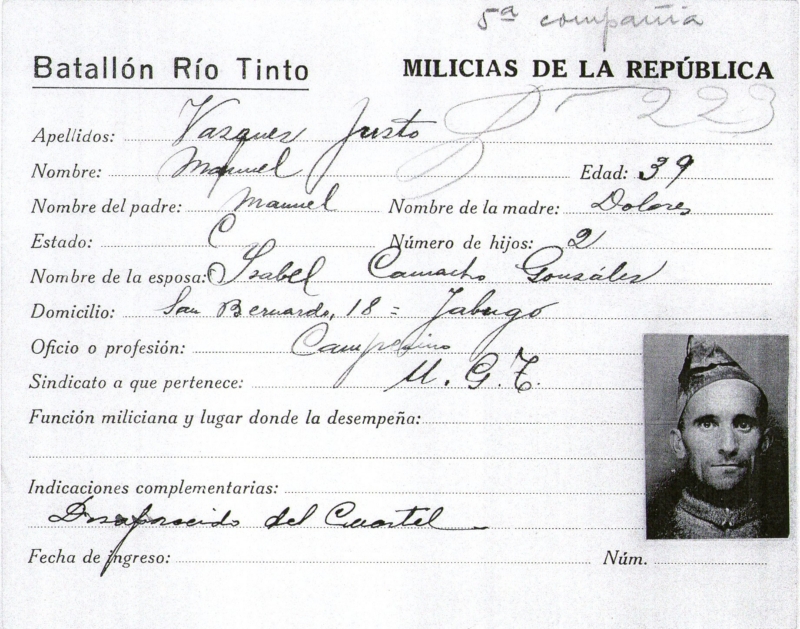 5ª compañia
Batallón Río Tinto MILICIAS DE LA REPÚBLICA
223
Apellidos: Vazquez Justo
Nombre: Manuel Edad: 39
Nombre del padre: Manuel Nombre de la madre: Dolores
Estado: C Número de hijos: 2
Nombre de la esposa: Isabel Camacho Gonzáles
Domicilio: San Bernardo, 18 = Jabugo
Oficio o profesión: Campesino
Sindicato a que pertenece: U. G. T.
Función miliciana y lugar donde la desempeña:
Indicaciones complementarias:
Desaparecido del Cuartel
Fecha de ingreso: Núm.